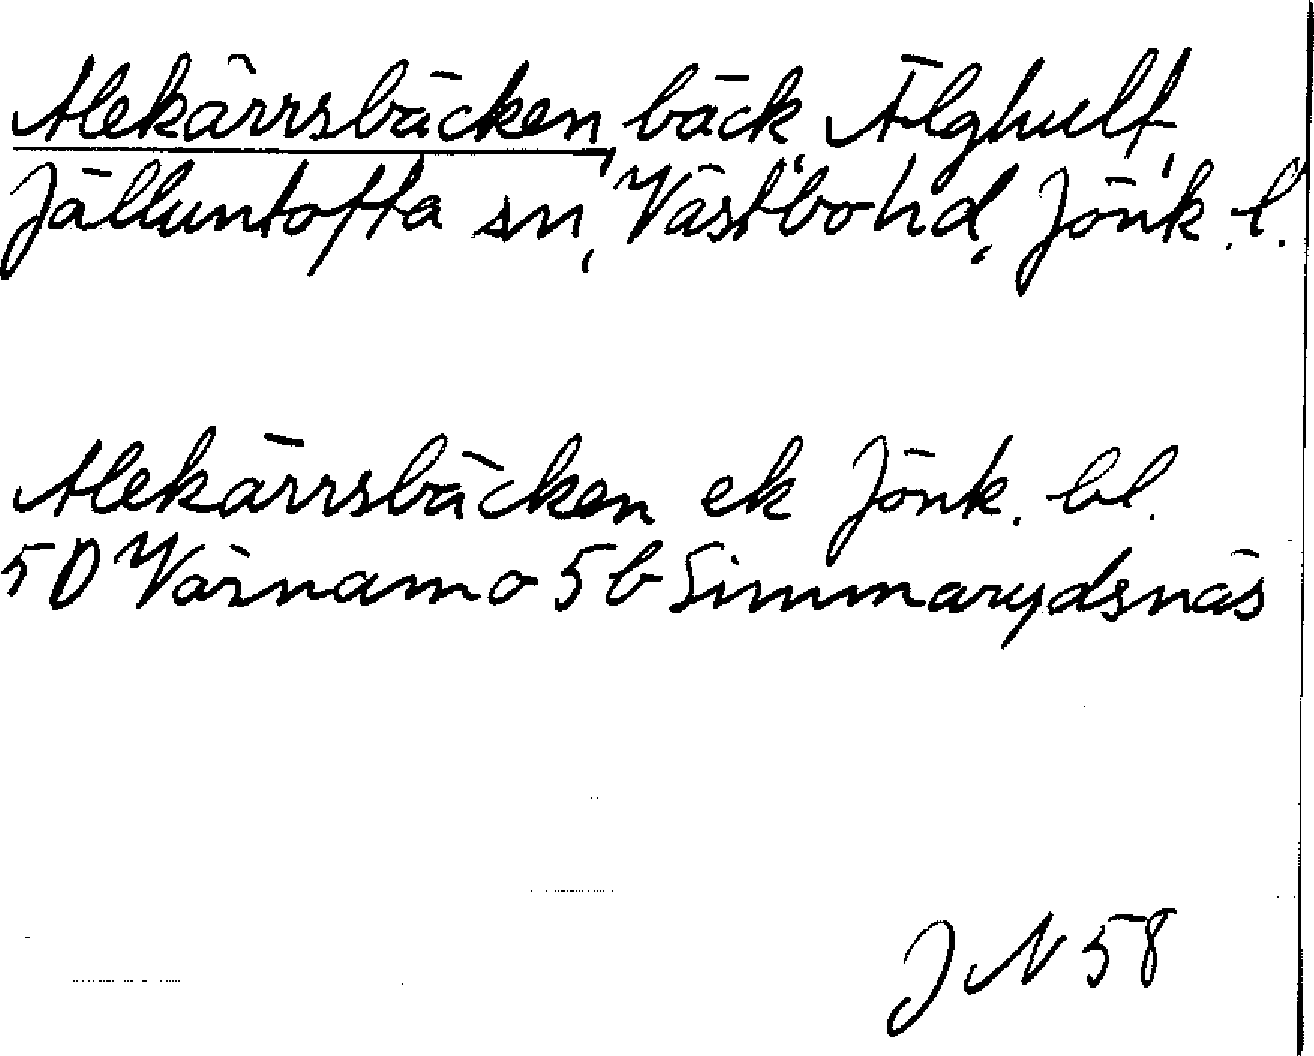 Alekärrsbäcken, bäck, Älghult,
Jälluntofta sn, Västbo hd, Jönk. l.
Alekärrsbäcken ek Jönk. bl.
5D Värnamo 5b Simmarydsnäs
JN 58